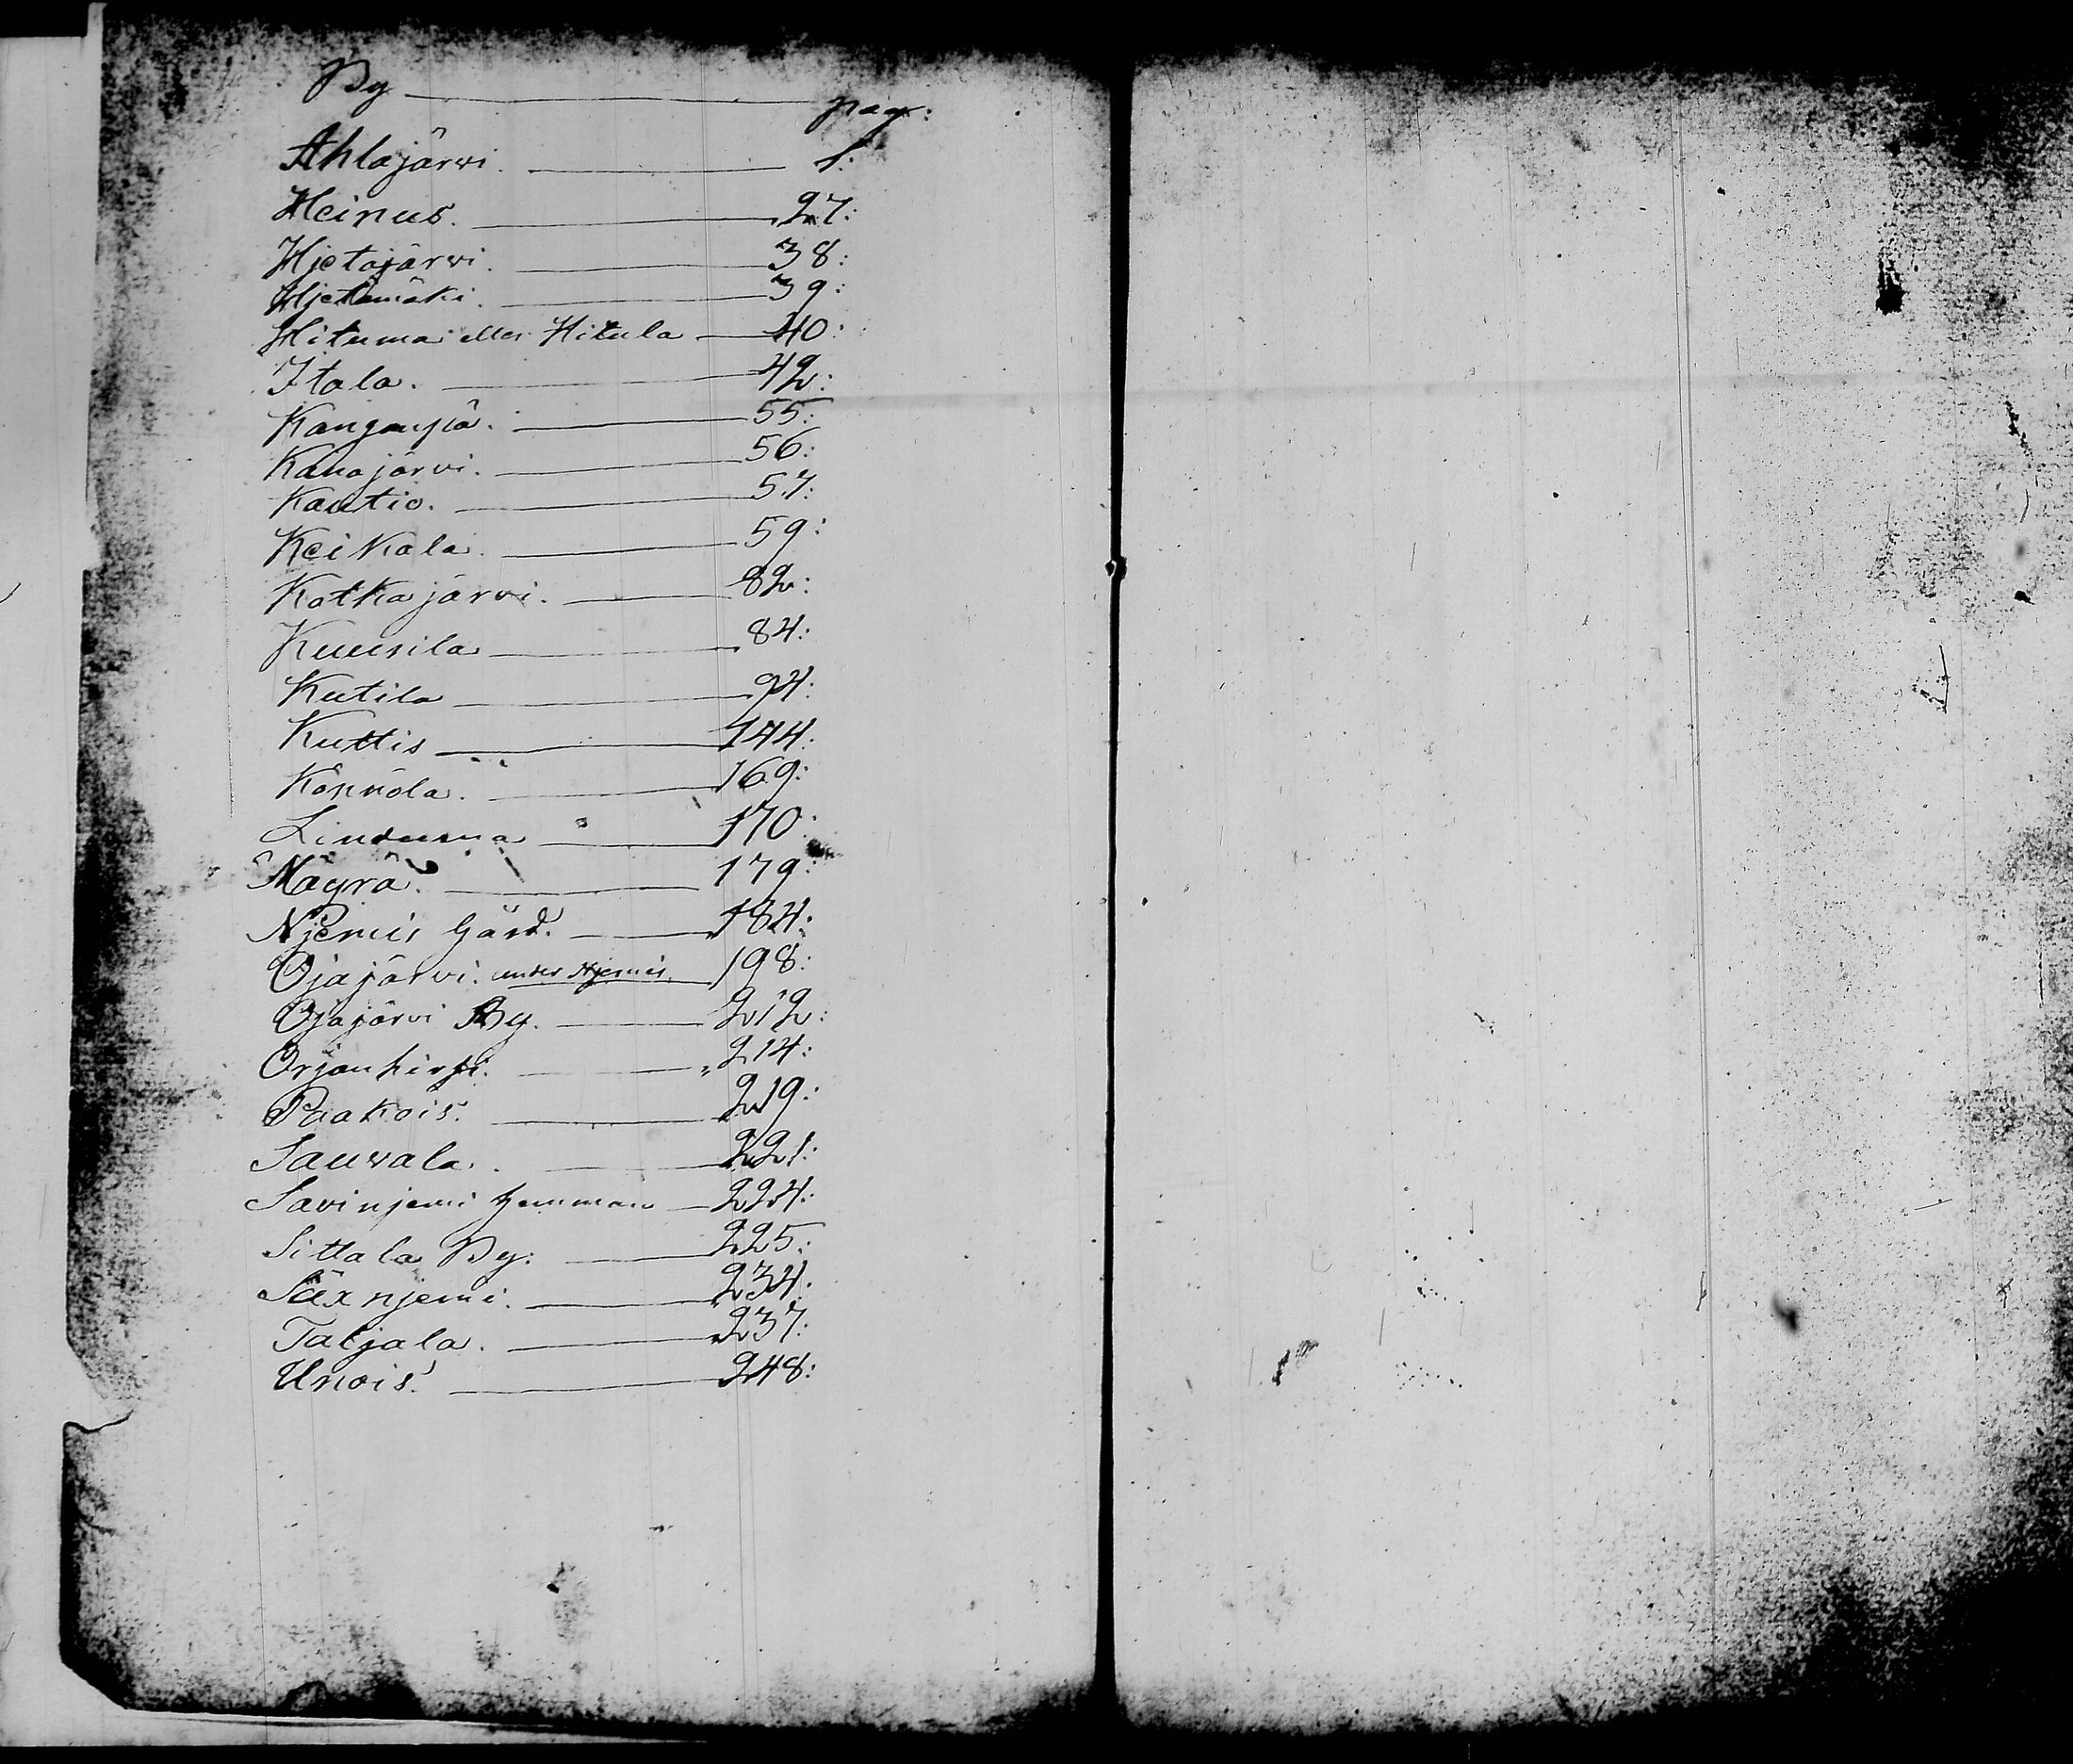 By ——— pag:
Ahlajärvi. ——— 1:
Heinus. ——— 27:
Hjetajärvi. ——— 38:
Hjetamäki. ——— 39:
Hituma eller Hitula ——— 40:
Itala. ——— 42:
——— 55:
Kanajärvi. ——— 56:
Kautio. ——— 57:
Keikala. ——— 59:
Kotkajärvi. ——— 82:
Kuusila ——— 84:
Kutila ——— 94:
Kuttis ——— 144:
Könnölä. ——— 169:
Linduma ——— 170:
Mäyrä. ——— 179:
Njemis Gård. ——— 184:
Ojajärvi. under Njemis. ——— 198:
Ojajärvi By. ——— 212:
Orjanhirsi. ——— 214:
Paakois. ——— 219:
Sauvala. ——— 221:
Savinjemi hemman ——— 224:
Sittala By: ——— 225:
Säxnjemi. ——— 234:
Taljala. ——— 237:
Unois. ——— 248: